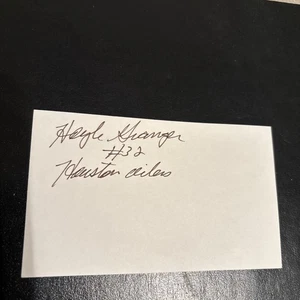 Hoyle Granger
#32
Houston oilers